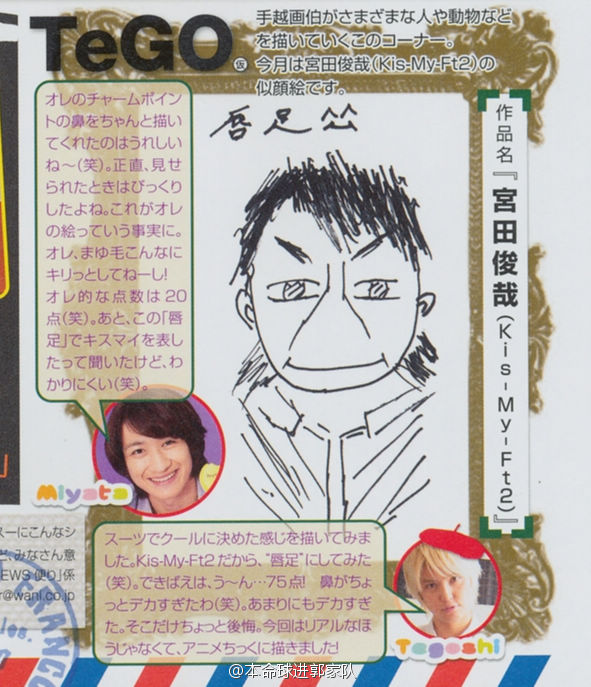 TeGO㊮
手越画伯がさまざまな人や動物など
を描いていくこのコーナー。
今月は宮田俊哉(Kis-My-Ft2)の
似顔絵です。
オレのチャームポイン
トの鼻をちゃんと描い
てくれたのはうれしい
ね〜(笑)。正直、見せ
られたときはびっくり
したよね。これがオレ
の絵っていう事実に。
オレ、まゆ毛こんなに
キリっとしてねーし!
オレ的な点数は20
点(笑)。あと、この「唇
足」でキスマイを表し
たって聞いたけど、わ
かりにくい(笑)。
唇足
作品名『宮田俊哉(Kis-My-Ft2)』
Miyata
スーツでクールに決めた感じを描いてみま
した。Kis-My-Ft2だから、“唇足”にしてみた
(笑)。できばえは、う〜ん…75点! 鼻がちょ
っとデカすぎたわ(笑)。あまりにもデカすぎ
た。そこだけちょっと後悔。今回はリアルなほ
うじゃなくて、アニメちっくに描きました!
Tegoshi
ーにこんなシ
ど、みなさん意
EWS 便り」係
r@wani.co.jp
@本命球进郭家队